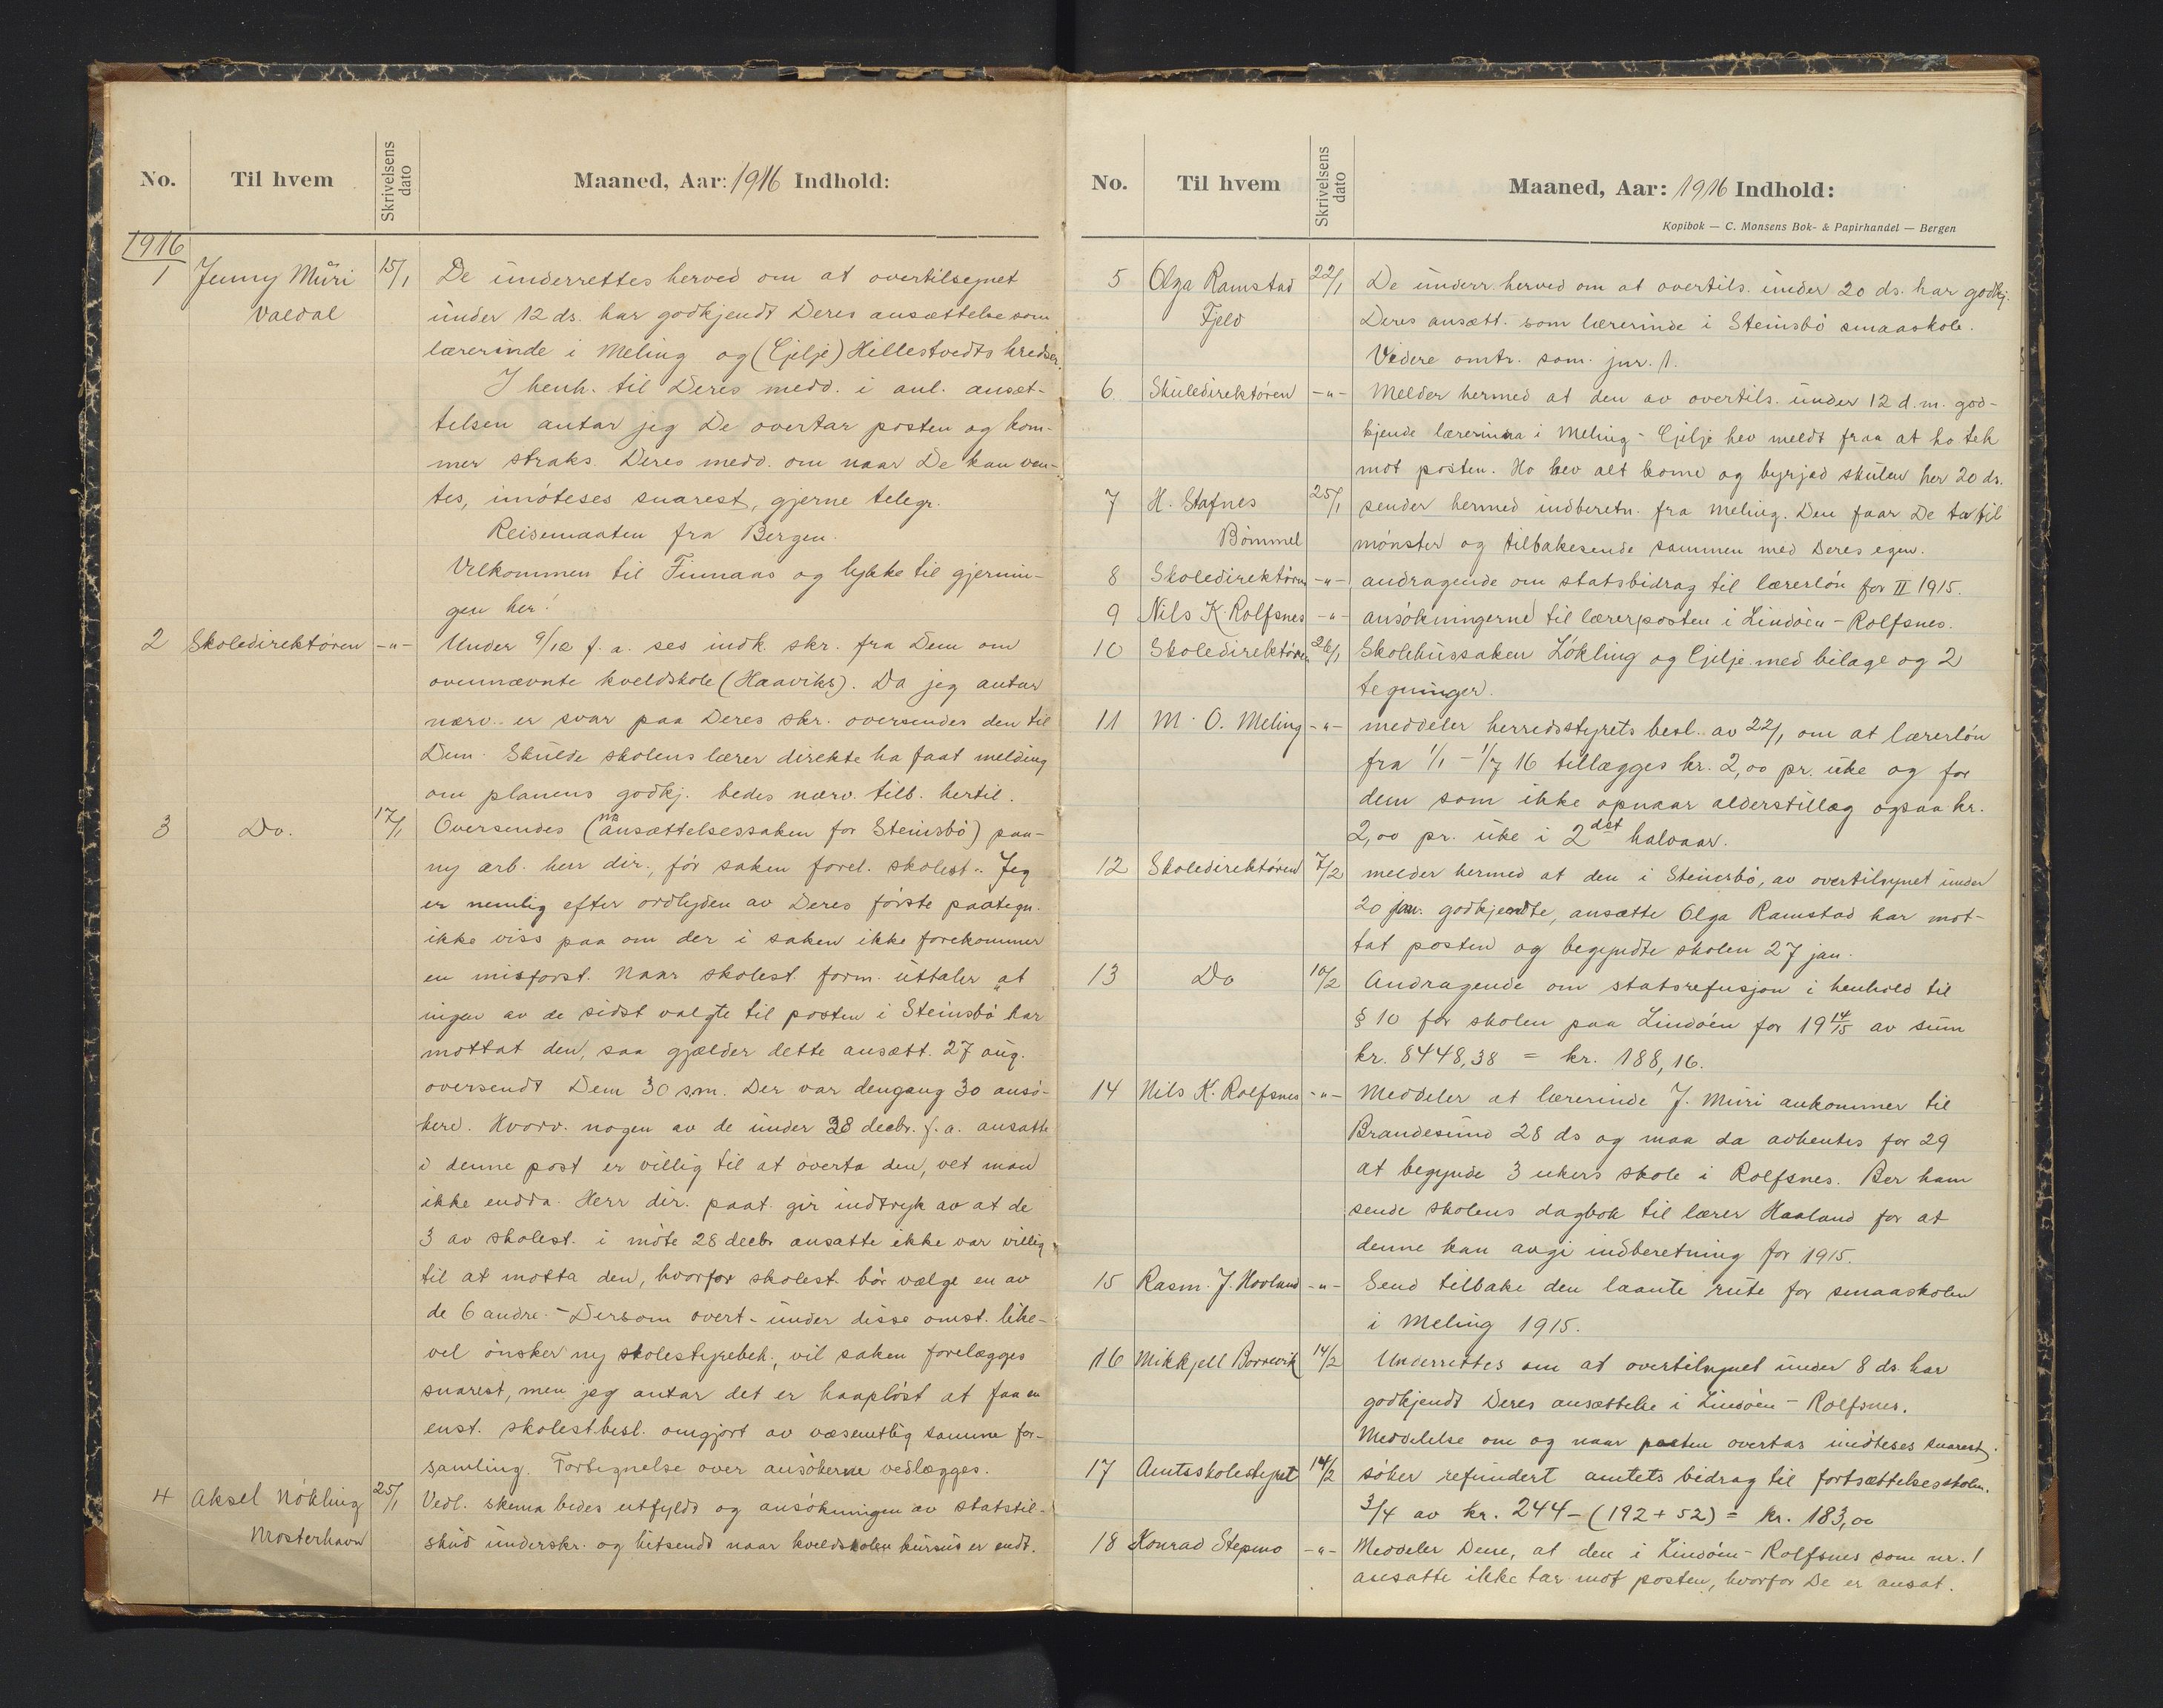 No. Til hvem Skrivelsens dato Maaned, Aar: 1916 Indhold:
1916
1 Jenny Muri 15/1 De underrettes herved om at overtilsynet
Valdal under 12 ds. har godkjendt Deres ansættelse som
lærerinde i Meling og (Gjelje) Hillestvedts kredser.
I henh. til Deres medd. i anl. ansæt-
telsen antar jeg De overtar posten og kom-
mer straks. Deres medd. om naar De kan ven-
tes, imøteses snarest, gjerne telegr.
Reisemaaten fra Bergen.
Velkommen til Finnaas og lykke til gjernin-
gen her!
2 Skoledirektøren -"- Under 9/12 f. a. ses indk. skr. fra Dem om
ovennævnte kveldskole (Haaviks). Da jeg antar
nærv. er svar paa Deres skr. oversendes den til
Dem. Skulde skolens lærer direkte ha faat melding
om planens godkj. bedes nærv. tilb. hertil.
3 Do. 17/1 Oversendes (ansættelsessaken for Steinsbø) paa-
ny ærb. herr dir., før saken forel. skolest. Jeg
er nemlig efter ordlyden av Deres første paategn.
ikke viss paa om der i saken ikke forekommer
en misforst. Naar skolest. form. uttaler "at
ingen av de sidst valgte til posten i Steinsbø har
mottat den, saa gjælder dette ansætt. 27 aug.
oversendt Dem 30 s.m. Der var dengang 30 ansø-
kere. Hvorv. nogen av de under 28 decbr. f. a. ansatte
i denne post er villig til at overta den, vet man
ikke endda. Herr dir. paat. gir indtryk av at de
3 av skolest. i møte 28 decbr ansatte ikke var villig
til at motta den, hvorfor skolest. bør vælge en av
de 6 andre. - Dersom overt. under disse omst. like-
vel ønsker ny skolestyrebeh., vil saken forelægges
snarest, men jeg antar det er haapløst at faa en
enst. skolest.besl. omgjort av væsentlig samme for-
samling. Fortegnelse over ansøkerne vedlægges.
4 Aksel Nökling 25/1 Vedl. skema bedes utfyldt og ansøkningen av statstil-
Mosterhavn skud underskr. og hitsendt naar kveldskolen kursus er endt.
No. Til hvem Skrivelsens dato Maaned, Aar: 1916 Indhold:
Kopibok — C. Monsens Bok- & Papirhandel — Bergen
5 Olga Ramstad 22/1 De underr. herved om at overtils. under 20 ds. har godkj.
Fjeld Deres ansætt. som lærerinde i Steinsbø smaaskole.
Videre omtr. som jnr. 1.
6 Skuledirektøren -"- Melder hermed at den av overtils. under 12 d. m. god-
kjende lærerinna i Meling - Gjelje hev meldt fraa at ho tek
mot posten. Ho hev alt kome og byrjad skulen her 20 ds.
7 H. Stafnes 25/1 sender hermed indberetn. fra Meling. Den faar De ta til
Bömmel mønster og tilbakesende sammen med Deres egen.
8 Skoledirektøren -"- andragende om statsbidrag til lærerløn for II 1915.
9 Nils K. Rolfsnes -"- ansøkningerne til lærerposten i Lindøen - Rolfsnes.
10 Skoledirektøren 26/1 Skolehussaken Løkling og Gjelje med bilage og 2
tegninger.
11 M. O. Meling -"- meddeler herredsstyrets besl. av 22/1 om at lærerløn
fra 1/1 - 1/7 16 tillægges kr. 2,00 pr. uke og for
dem som ikke opnaar alderstillæg ogsaa kr.
2,00 pr. uke i 2det halvaar.
12 Skoledirektøren 7/2 melder hermed at den i Steinsbø, av overtilsynet under
20 jan. godkjendte, ansatte Olga Ramstad har mot-
tat posten og begyndte skolen 27 jan.
13 Do 10/2 Andragende om statsrefusjon i henhold til
§ 10 for skolen paa Lindøen for 19 14/15 av sum
kr. 8448,38 = kr. 188,16.
14 Nils K. Rolfsnes -"- Meddeler at lærerinde J. Muri ankommer til
Brandesund 28 ds og maa da avhentes for 29
at begynde 3 ukers skole i Rolfsnes. Ber ham
sende skolens dagbok til lærer Haaland for at
denne kan avgi indberetning for 1915.
15 Rasm. J. Hovland -"- Send tilbake den laante rute for smaaskolen
i Meling 1915.
16 Mikkjell Borrevik 14/2 Underrettes om at overtilsynet under 8 ds. har
godkjendt Deres ansættelse i Lindøen - Rolfsnes.
Meddelelse om og naar posten overtas imøteses snarest.
17 Amtsskolestyret 14/2 søker refundert amtets bidrag til fortsættelsesskolen.
3/4 av kr. 244 - (192 + 52) = kr. 183,00
18 Konrad Stepmo -"- Meddeler Dem, at den i Lindøen - Rolfsnes som nr. 1
ansatte ikke tar mot posten, hvorfor De er ansat.